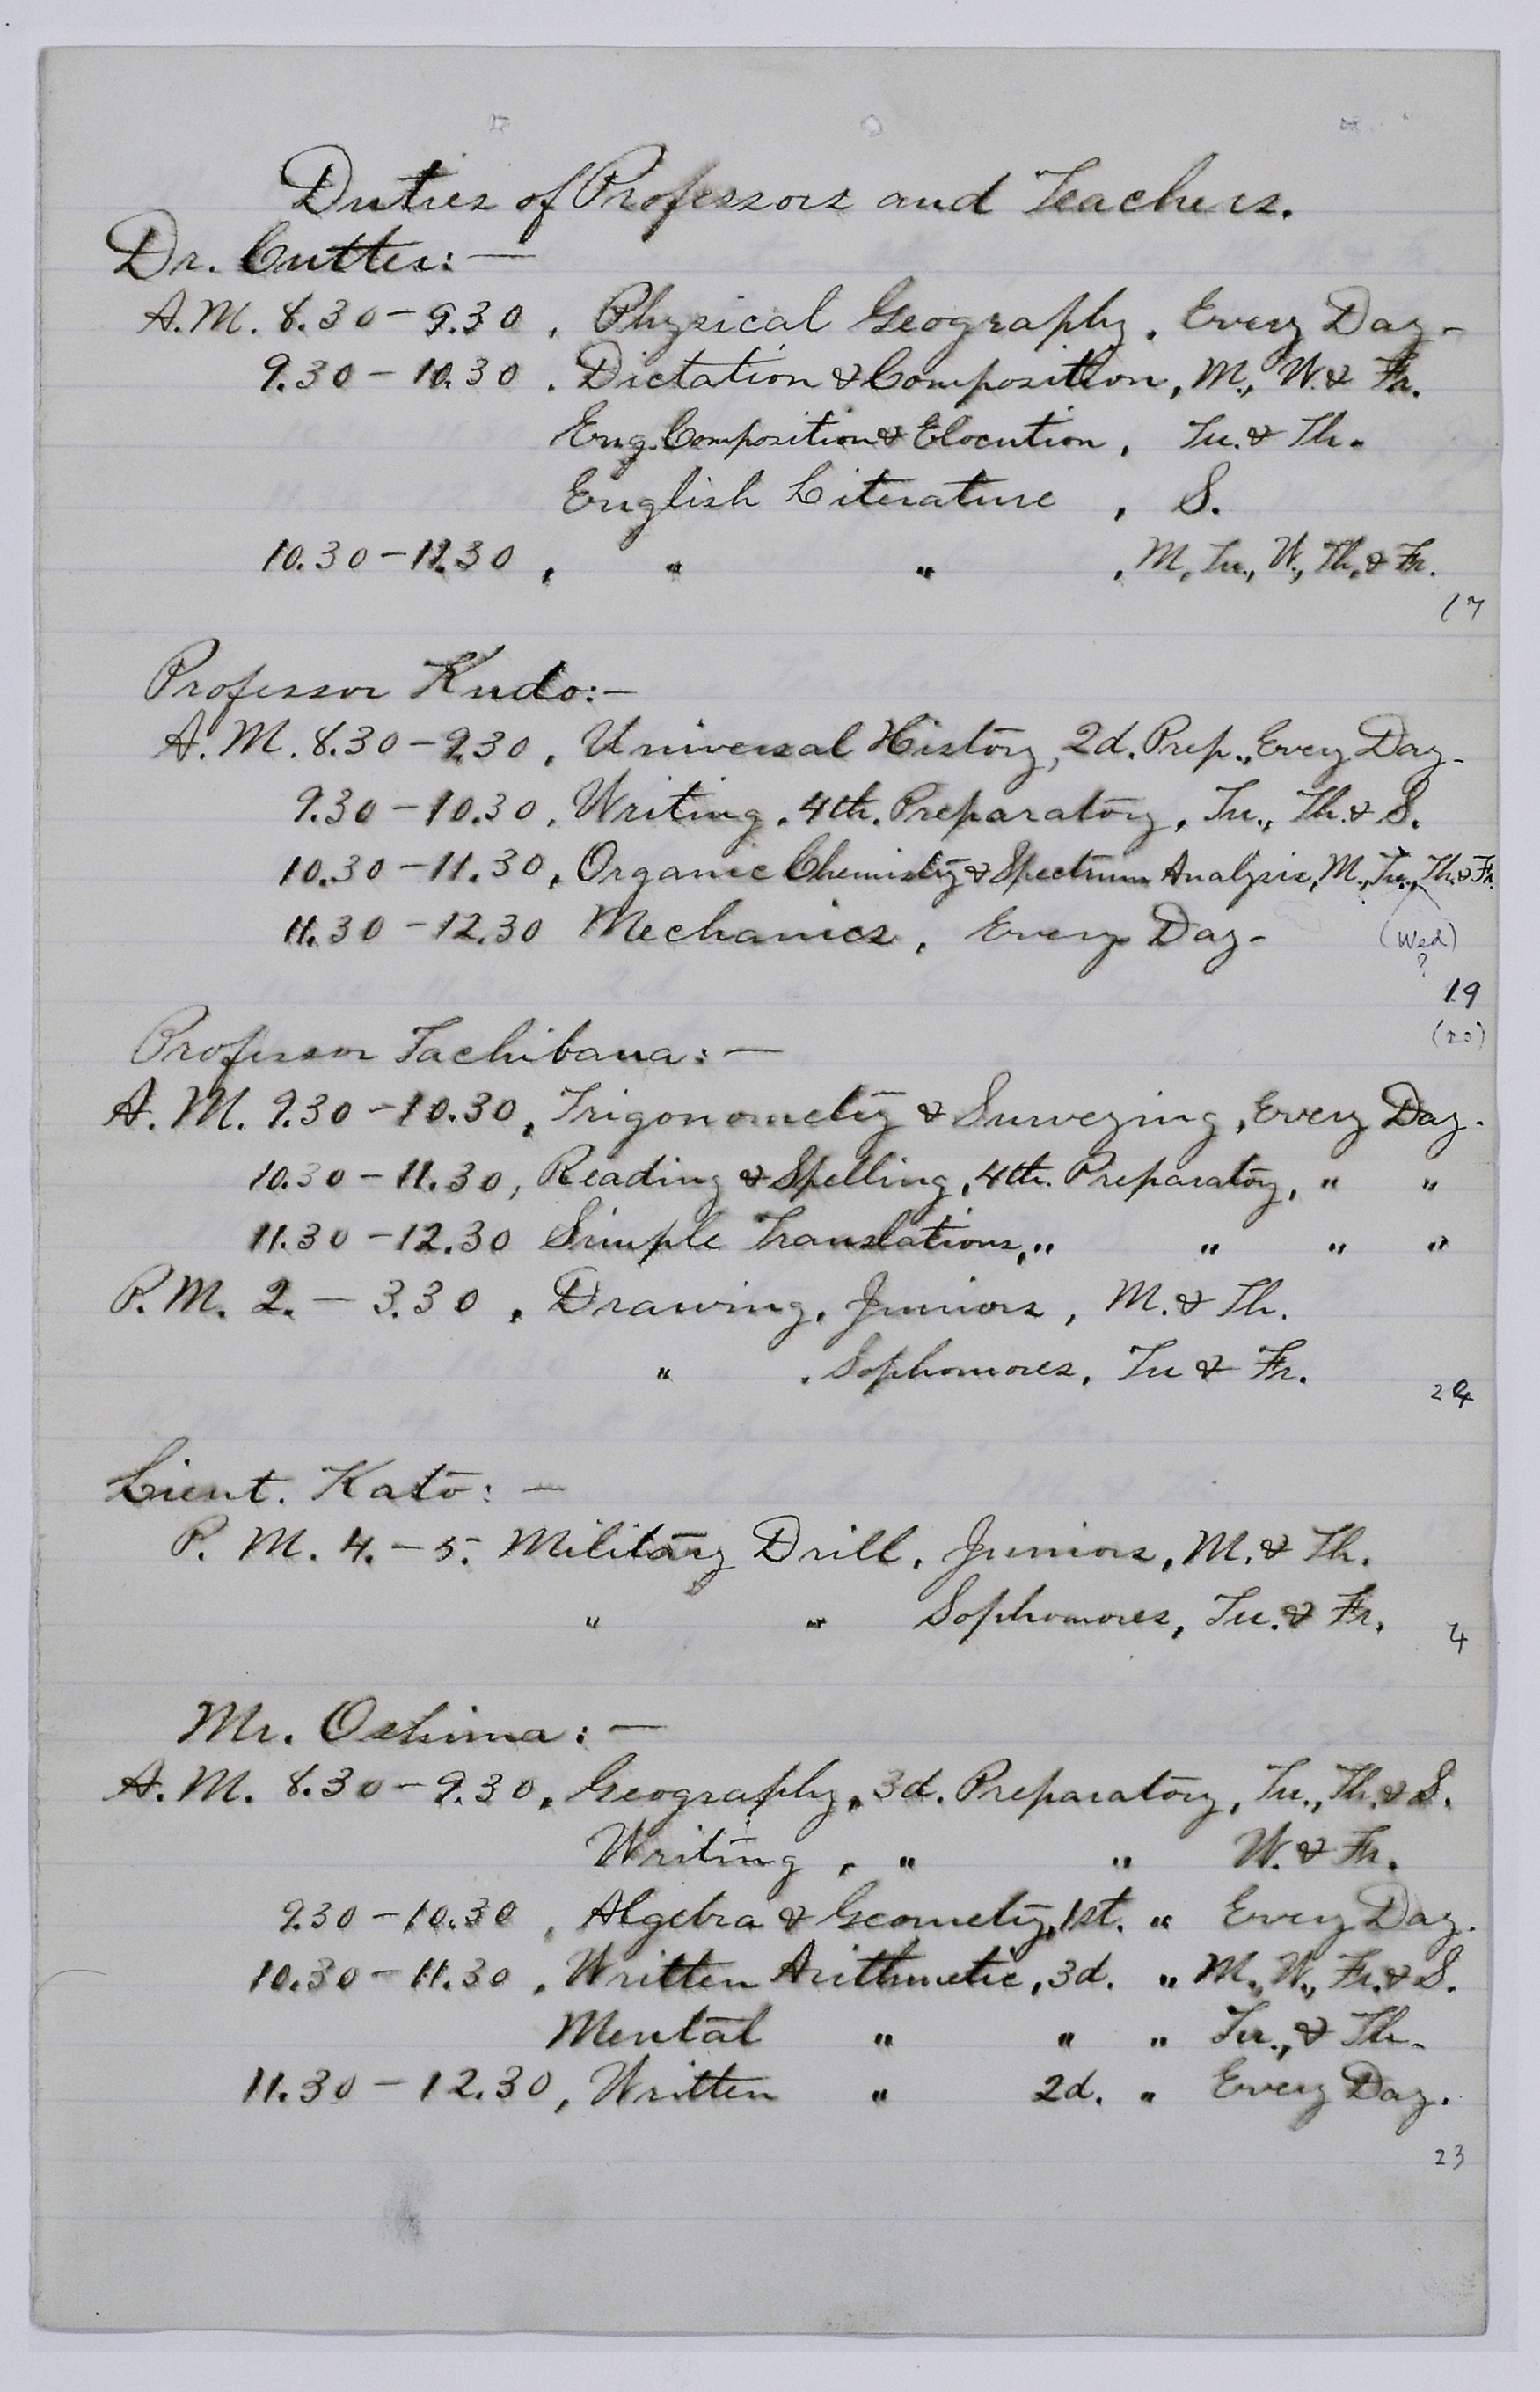 Duties of Professors and Teachers.
Dr. Cutter: —
A.M. 8.30 – 9.30, Physical Geography, Every Day.
9.30 – 10.30, Dictation & Composition, M., W. & Fr.
Eng. Composition & Elocution, Tu. & Th.
English Literature, S.
10.30 – 11.30, " " , M., Tu., W., Th. & Fr.
17
Professor Kudo: –
A.M. 8.30 – 9.30, Universal History, 2d. Prep., Every Day.
9.30 – 10.30, Writing, 4th. Preparatory, Tu., Th. & S.
10.30 – 11.30, Organic Chemistry & Spectrum Analysis, M., Tu., Th. & Fr.
11.30 – 12.30 Mechanics, Every Day.
(Wed)
?
19
(20)
Professor Tachibana: —
A.M. 9.30 – 10.30, Trigonometry & Surveying, Every Day.
10.30 – 11.30, Reading & Spelling, 4th. Preparatory, " "
11.30 – 12.30 Simple Translations, " " " "
P.M. 2. – 3.30, Drawing, Juniors, M. & Th.
" , Sophomores, Tu & Fr.
24
Lieut. Kato: —
P.M. 4. – 5. Military Drill, Juniors, M. & Th.
" " Sophomores, Tu. & Fr.
4
Mr. Oshima: —
A.M. 8.30 – 9.30, Geography, 3d. Preparatory, Tu., Th. & S.
Writing, " " W. & Fr.
9.30 – 10.30, Algebra & Geometry, 1st. " Every Day.
10.30 – 11.30, Written Arithmetic, 3d. " M., W., Fr. & S.
Mental " " " Tu., & Th.
11.30 – 12.30, Written " 2d. " Every Day.
23